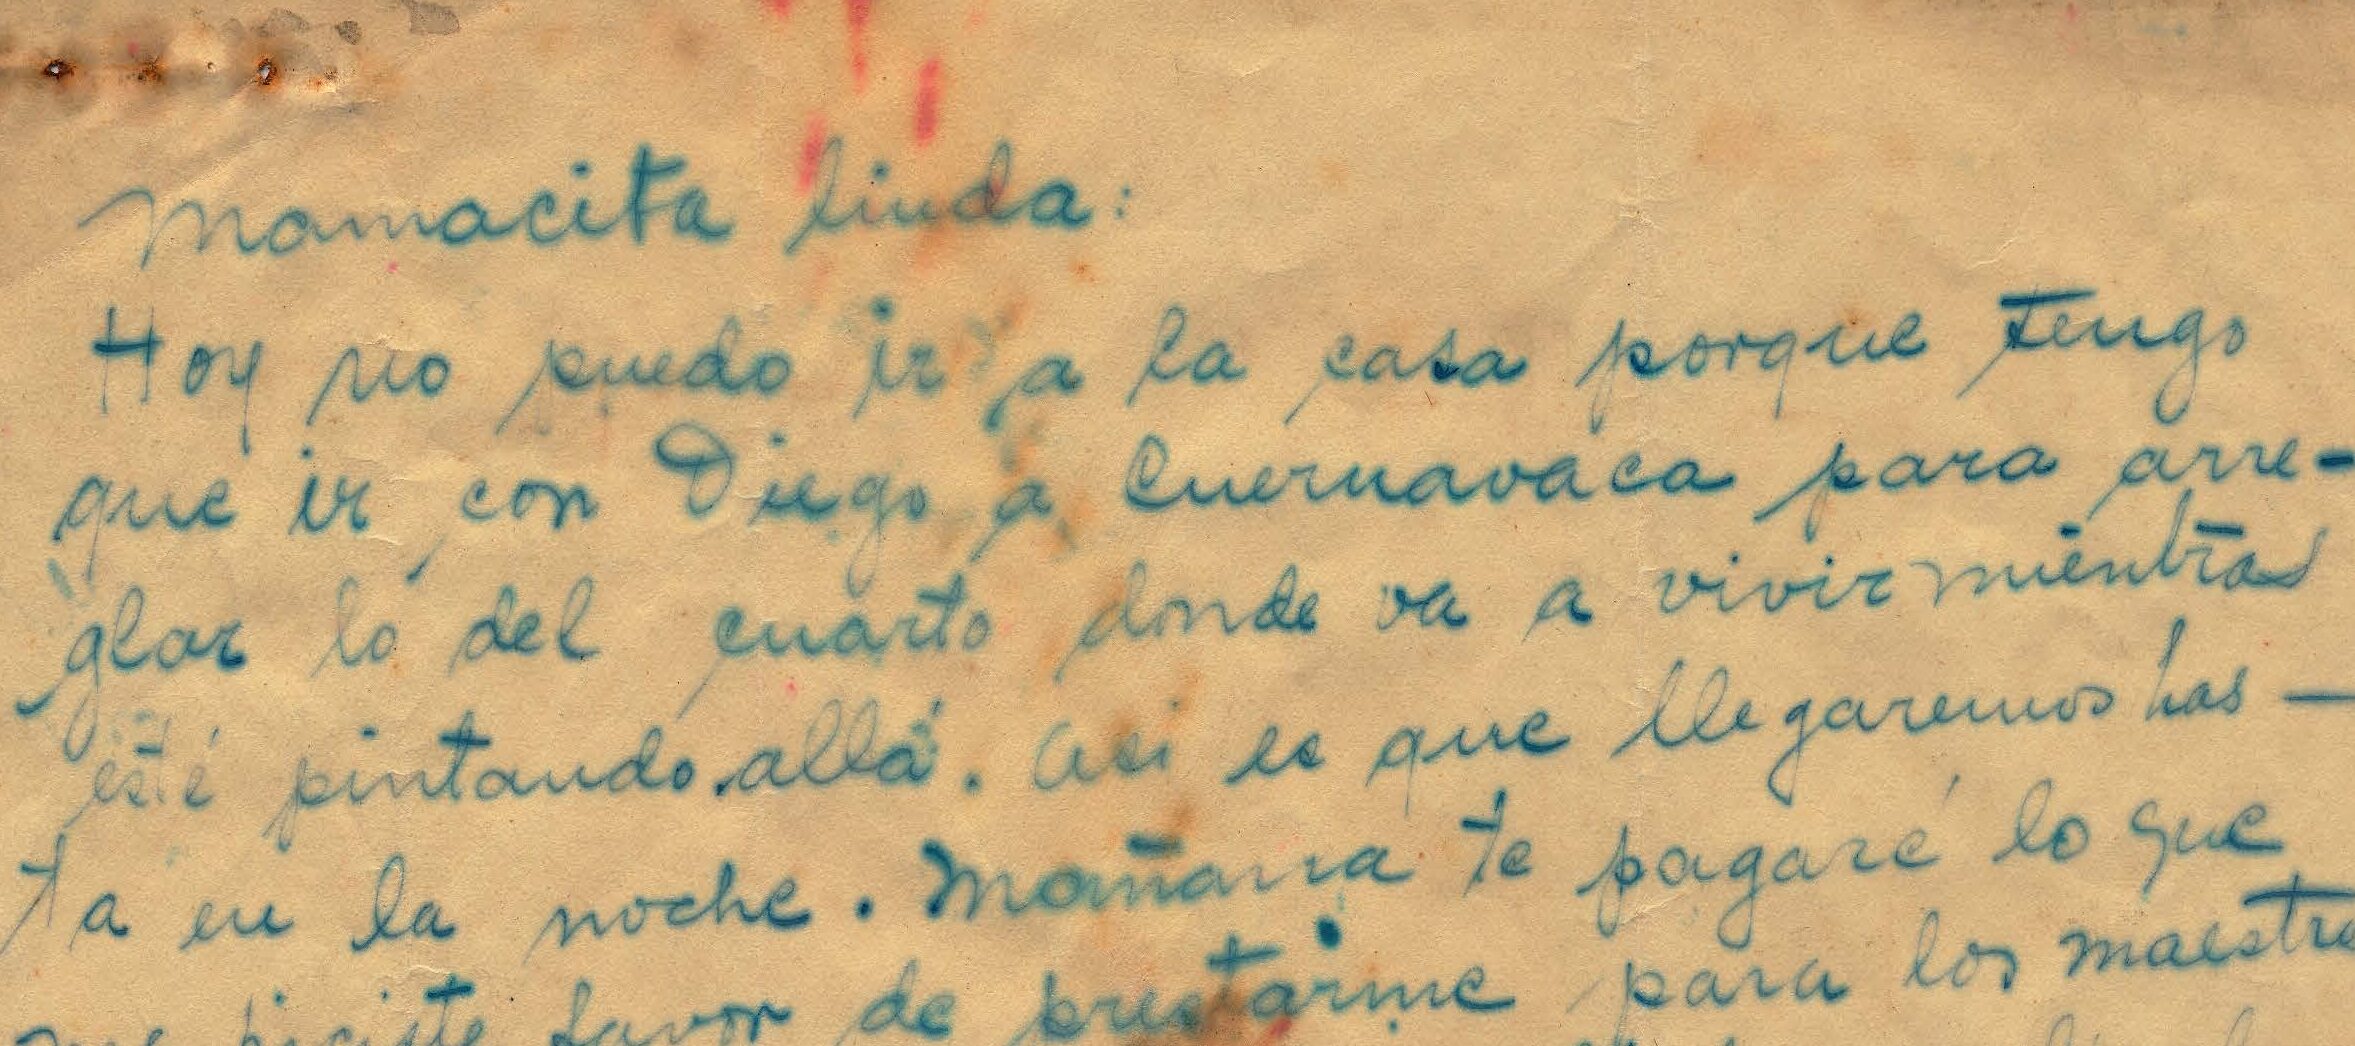 Mamacita linda:
Hoy no puedo ir a la casa porque tengo
que ir con Diego a Cuernavaca para arre-
glar lo del cuarto donde va a vivir mientras
esté pintando allá. Asi es que llegaremos has-
ta en la noche. Mañana te pagaré lo que
me hiciste favor de prestarme para los maestro